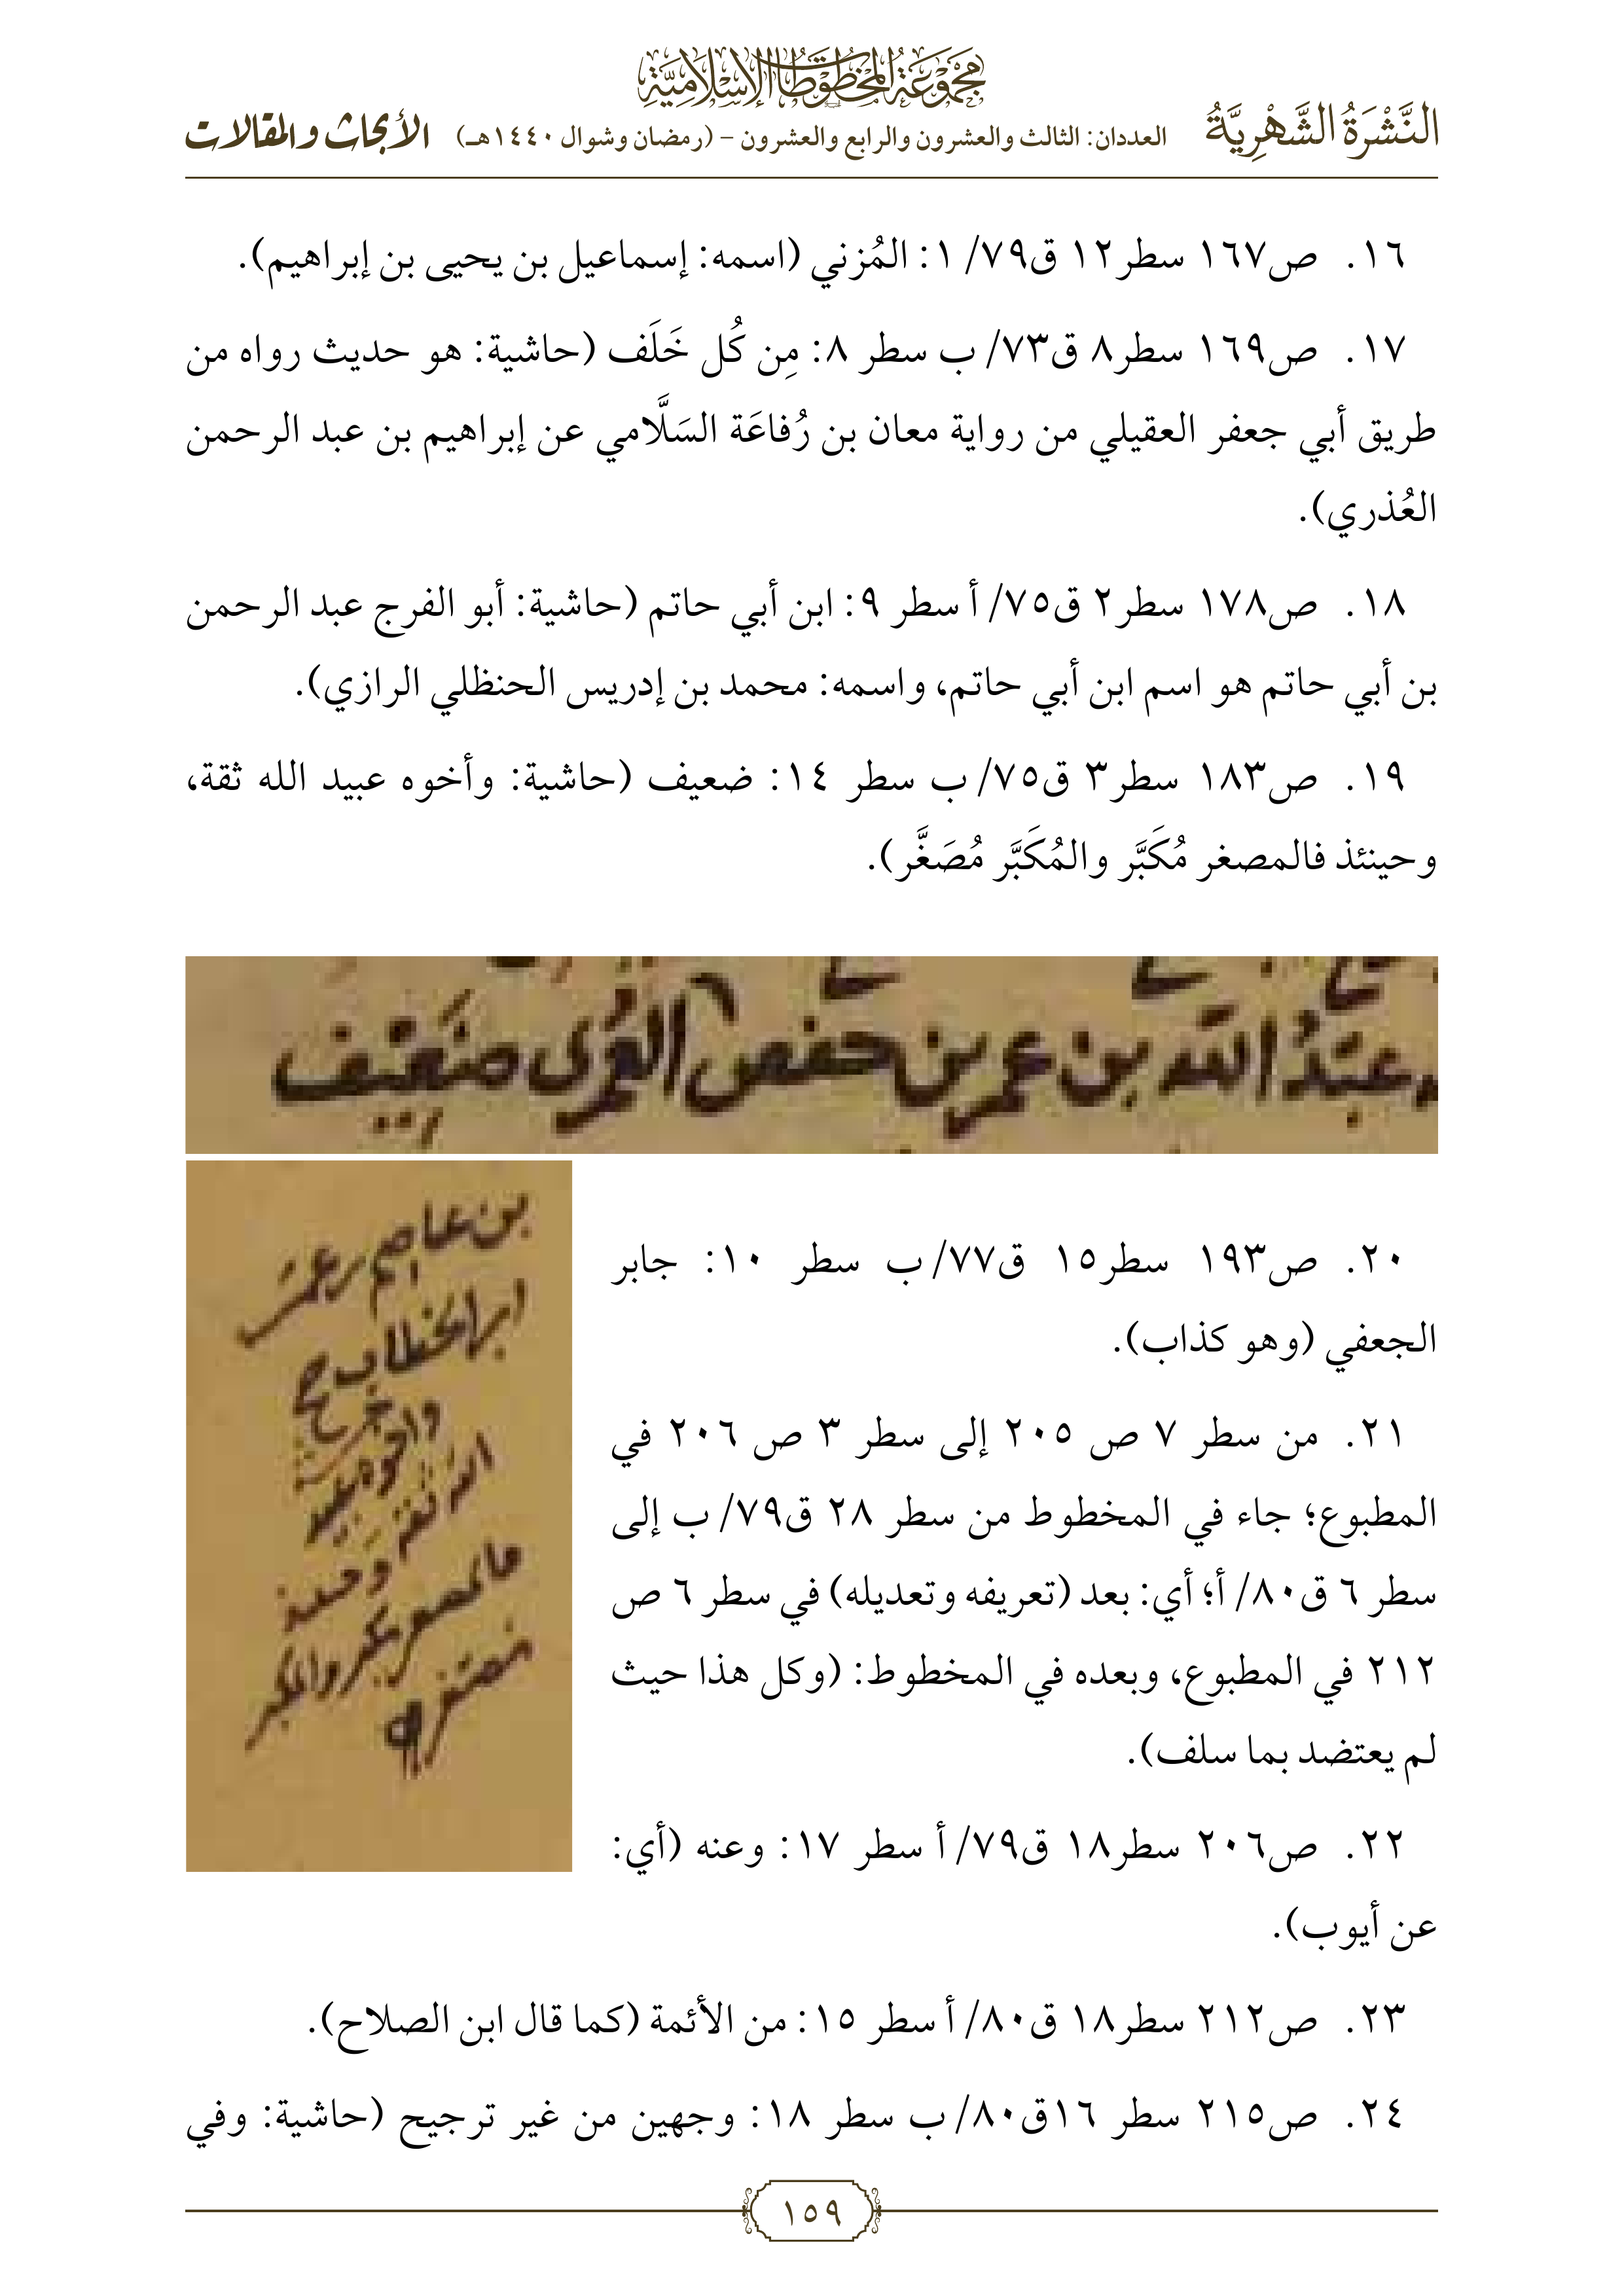 مجموعة المخطوطات الإسلامية
النَّشْرَةُ الشَّهْرِيَّةُ العددان: الثالث والعشرون والرابع والعشرون – (رمضان وشوال ١٤٤٠هـ) الأبحاث والمقالات
١٦. ص١٦٧ سطر١٢ ق٧٩/ ١: المُزني (اسمه: إسماعيل بن يحيى بن إبراهيم).
١٧. ص١٦٩ سطر٨ ق٧٣/ ب سطر ٨: مِن كُل خَلَف (حاشية: هو حديث رواه من
طريق أبي جعفر العقيلي من رواية معان بن رُفاعَة السَلَّامي عن إبراهيم بن عبد الرحمن
العُذري).
١٨. ص١٧٨ سطر٢ ق٧٥/ أ سطر ٩: ابن أبي حاتم (حاشية: أبو الفرج عبد الرحمن
بن أبي حاتم هو اسم ابن أبي حاتم، واسمه: محمد بن إدريس الحنظلي الرازي).
١٩. ص١٨٣ سطر٣ ق٧٥/ ب سطر ١٤: ضعيف (حاشية: وأخوه عبيد الله ثقة،
وحينئذ فالمصغر مُكَبَّر والمُكَبَّر مُصَغَّر).
عبدُ الله بن عمر بن حفص العُمرى ضعيف
بن عاصم بن عمر
ابن الخطاب
واخوه عبيد
الله ثقة وحينئذ
فالمصغر مكبر والمكبر
مصغر
٢٠. ص١٩٣ سطر١٥ ق٧٧/ ب سطر ١٠: جابر
الجعفي (وهو كذاب).
٢١. من سطر ٧ ص ٢٠٥ إلى سطر ٣ ص ٢٠٦ في
المطبوع؛ جاء في المخطوط من سطر ٢٨ ق٧٩/ ب إلى
سطر ٦ ق٨٠/ أ؛ أي: بعد (تعريفه وتعديله) في سطر ٦ ص
٢١٢ في المطبوع، وبعده في المخطوط: (وكل هذا حيث
لم يعتضد بما سلف).
٢٢. ص٢٠٦ سطر١٨ ق٧٩/ أ سطر ١٧: وعنه (أي:
عن أيوب).
٢٣. ص٢١٢ سطر١٨ ق٨٠/ أ سطر ١٥: من الأئمة (كما قال ابن الصلاح).
٢٤. ص٢١٥ سطر ١٦ق٨٠/ ب سطر ١٨: وجهين من غير ترجيح (حاشية: وفي
١٥٩